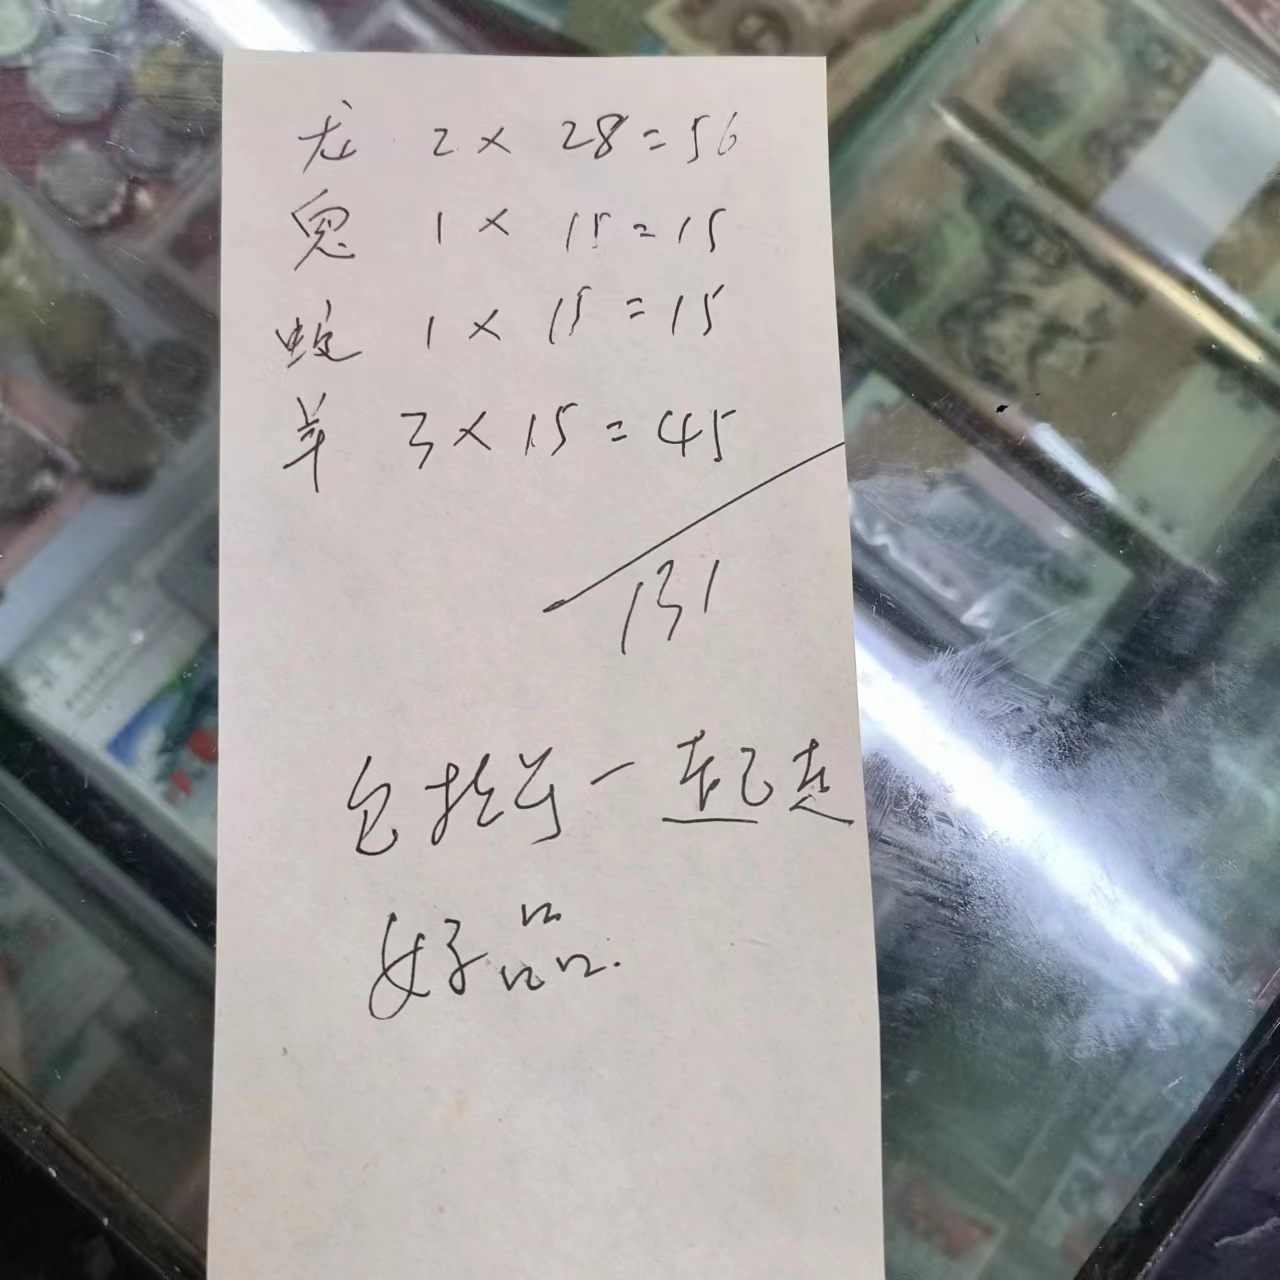 龙 2 × 28 = 56
兔 1 × 15 = 15
蛇 1 × 15 = 15
羊 3 × 15 = 45
131
包括羊一起走
好品.